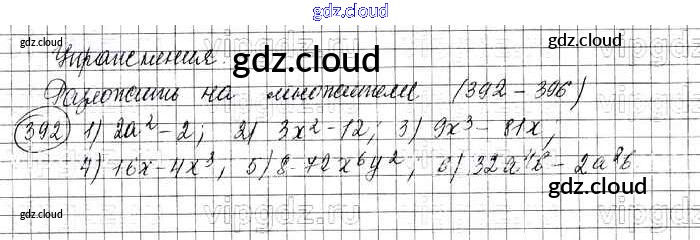 gdz.cloud
gdz.cloud
gdz.cloud
Упражнения.
gdz.cloud
Разложить на множители (392 – 396)
392 1) 2a² – 2; 2) 3x² – 12; 3) 9x³ – 81x;
4) 16x – 4x³; 5) 8 – 72x⁶y²; 6) 32a⁴b – 2a⁸b
gdz.cloud
gdz.cloud
gdz.cloud
vipgdz.ru